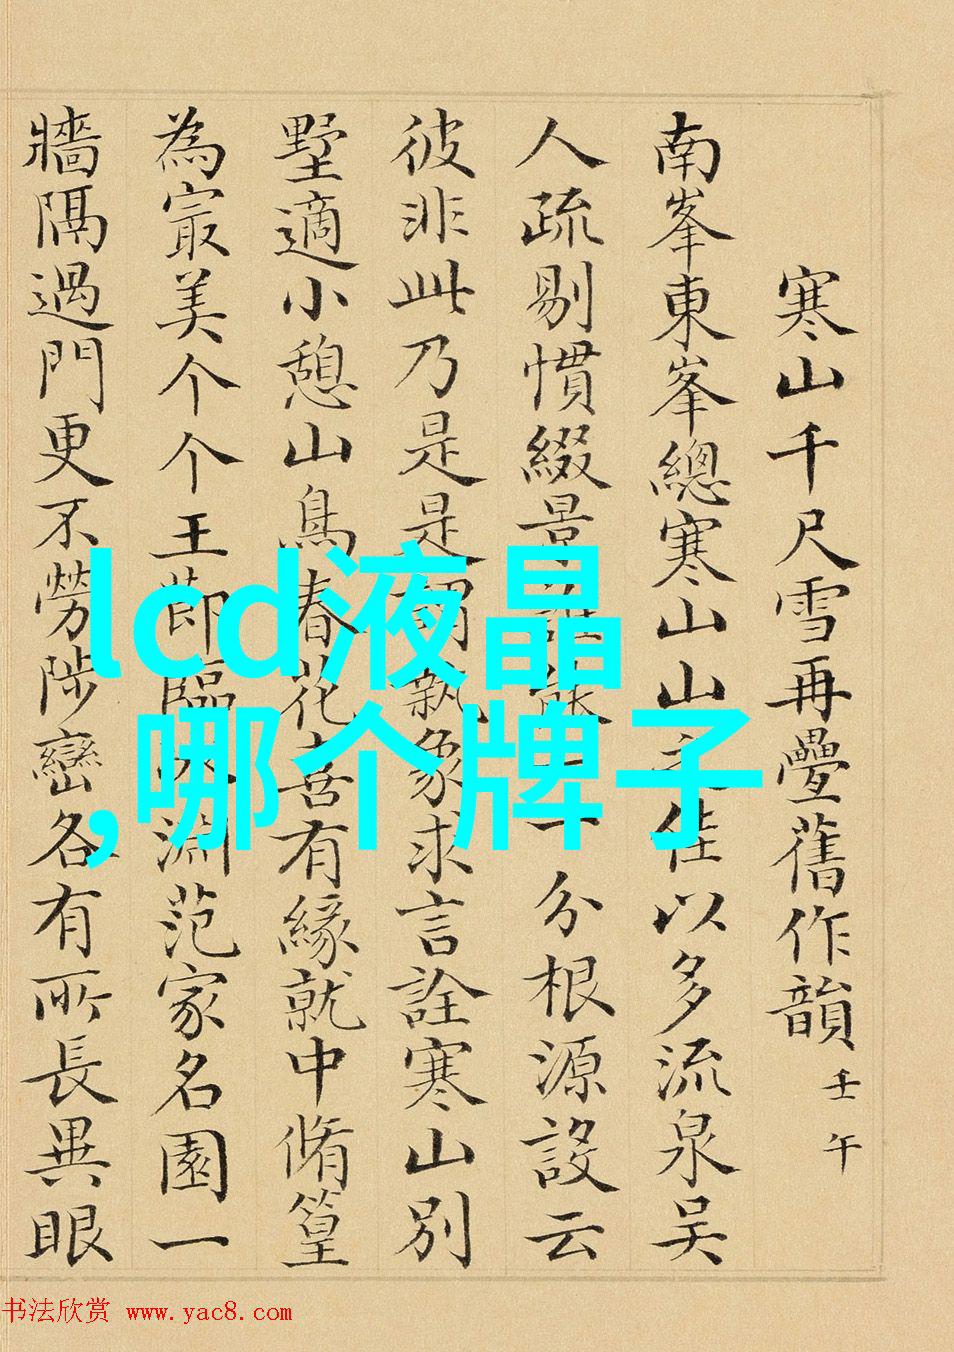 寒山千尺雪再疊舊作韻 壬午
南峯東峯總寒山山之佳以多流泉吴
人疏剔慣綴景誰能一一分根源設云
彼非此乃是是謂執象求言詮寒山別
墅適小憩山鳥春花喜有緣就中脩篁
為冣美个个玉莭臨天淵范家名園一
牆隔過門更不勞陟巒各有所長異眼
lcd液晶
,哪个牌子
书法欣赏 www.yac8.com